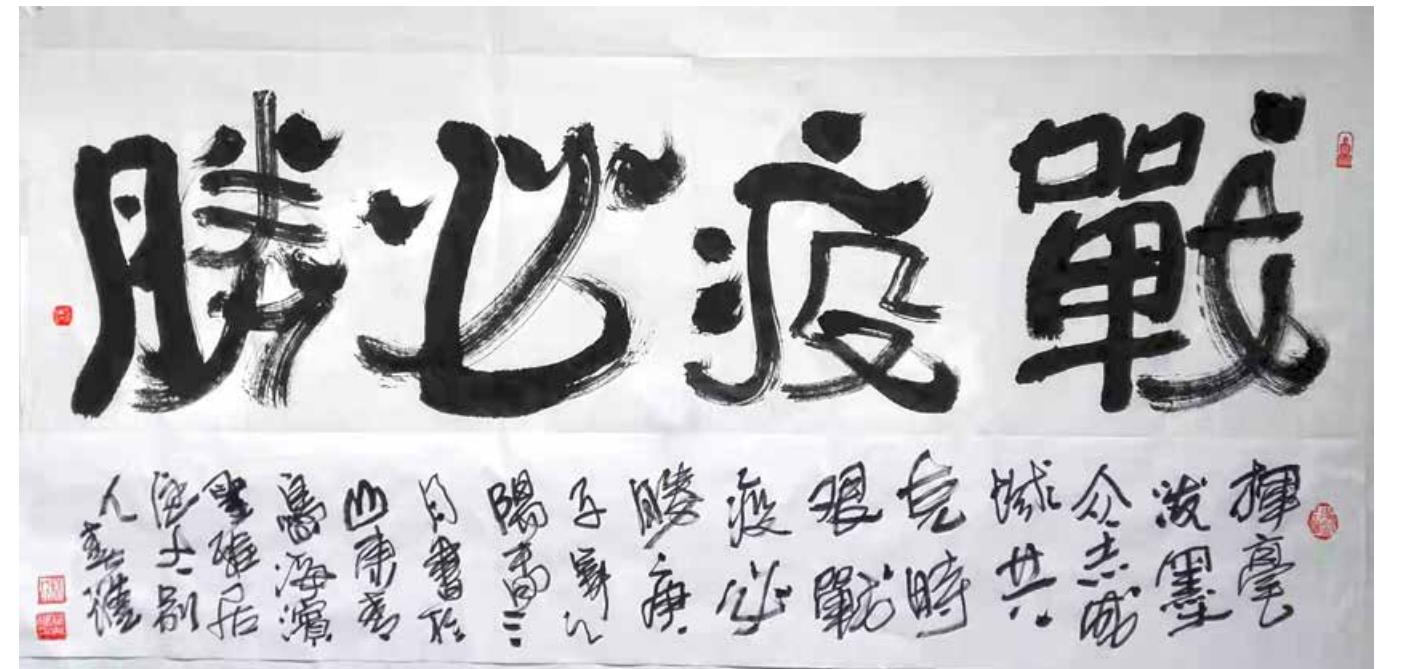 戰疫必勝
揮毫
潑墨
众志成
城共
克時
艰戰
疫必
勝庚
子
陽春三
月書於
山東青
島海濱
聖雅居
人